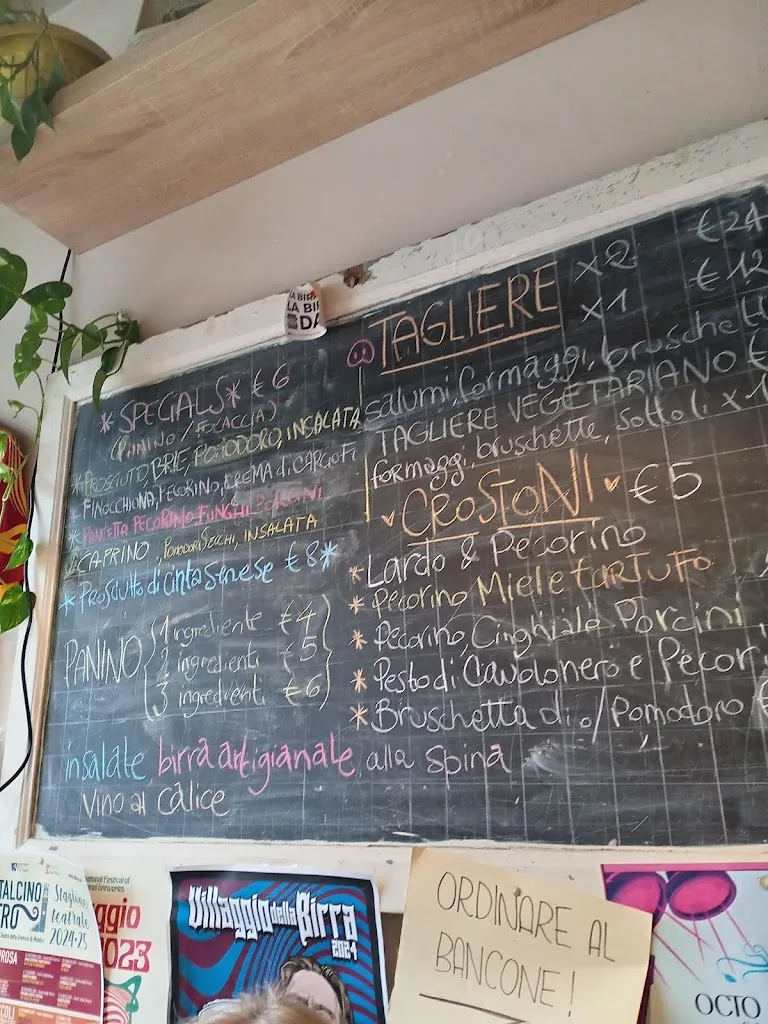 LA BIRRA
LA BIR
DA
*SPECIALS* €6
(PANINO / FOCACCIA)
*PROSCIUTTO, BRIE, POMODORO, INSALATA
*FINOCCHIONA, PECORINO, CREMA di CARCIOFI
*PANCETTA PECORINO FUNGHI PORCINI
*CAPRINO, POMODORI SECCHI, INSALATA
*Prosciutto di cinta senese €8*
PANINO
1 ingrediente €4
2 ingredienti €5
3 ingredienti €6
insalate, birra artigianale alla spina
vino al calice
TAGLIERE x2 €24
x1 €12
salumi, formaggi, bruschette
TAGLIERE VEGETARIANO €
formaggi, bruschette, sottoli x1
CROSTONI €5
*Lardo & Pecorino
*Pecorino Miele tartufo
*Pecorino, Cinghiale Porcini
*Pesto di Cavolonero e Pecor
*Bruschetta d'o/Pomodoro €
TALCINO
RO
Stagione
teatrale
2024-25
PROSA
national Festival of
breweries
aggio
2023
Villaggio della
Birra
2024
ORDINARE AL
BANCONE!
OCTO